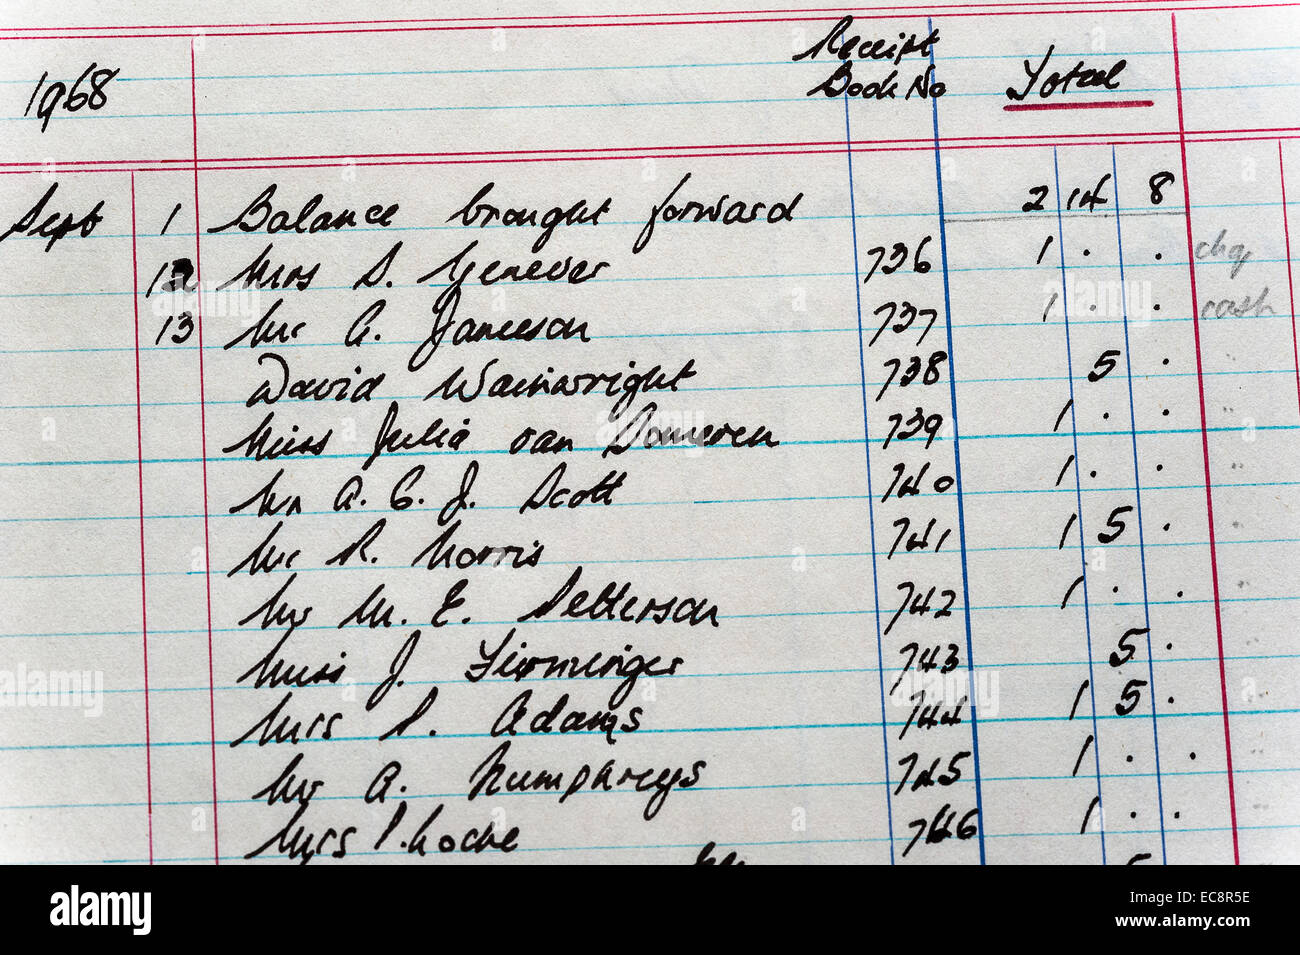 Receipt
1968 Book No Total
Sept 1 Balance brought forward 2 14 8
12 Mrs D. Genever 736 1 . . chq
13 Mr A. Jameson 737 1 . . cash
David Wainwright 738 5 .
Miss Julia van Someren 739 1 . .
Mr A. C. J. Scott 740 1 . .
Mr R. Norris 741 1 5 .
Mr M. E. Setterson 742 1 . .
Miss J. Firminger 743 5 .
Mrs P. Adams 744 1 5 .
Mr A. Humphreys 745 1 . .
Mrs P. Roche 746 1 . .
5
alamy
alamy stock photo
EC8R5E
www.alamy.com